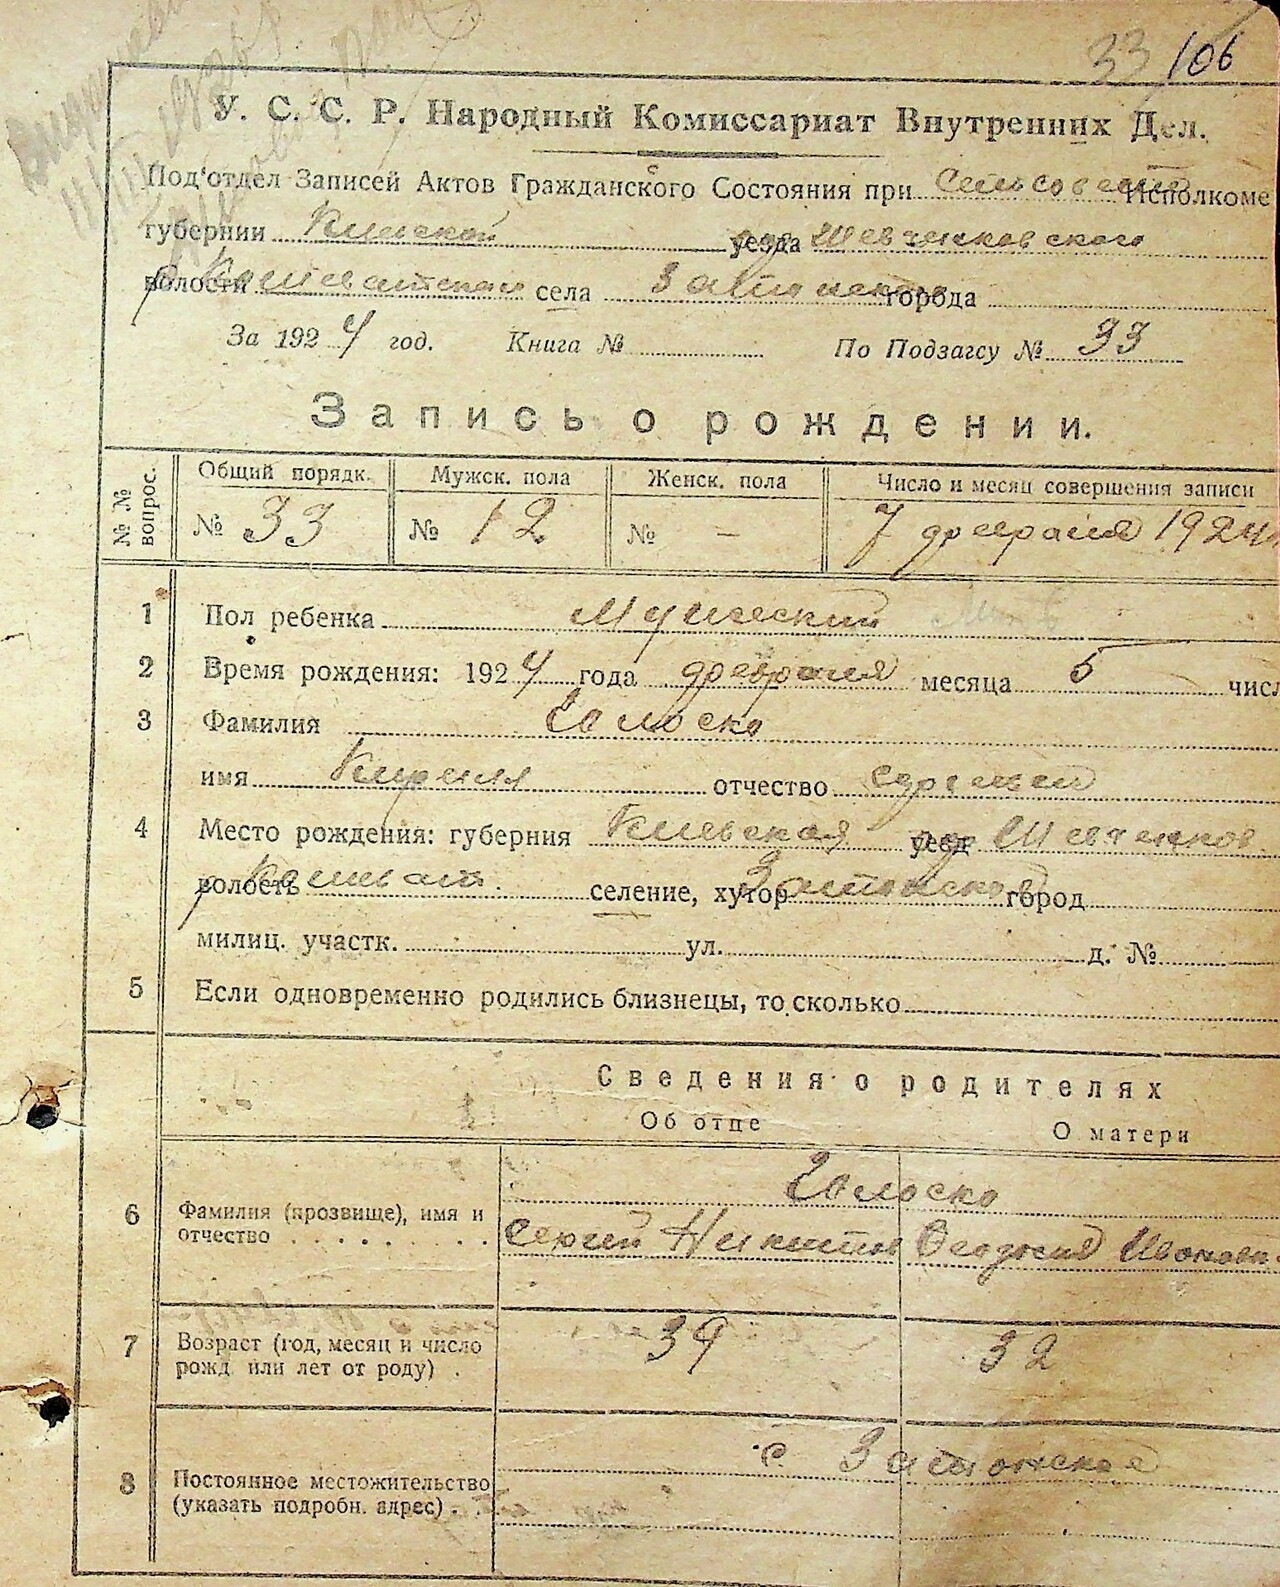 33 106
У. С. С. Р. Народный Комиссариат Внутренних Дел.
Под'отдел Записей Актов Гражданского Состояния при Сельсовете Исполкоме
губернии Киевской уезда Шевченковского
волости села города
За 1924 год. Книга № По Подзагсу № 33
Запись о рождении.
№ № вопрос. Общий порядк. Мужск. пола Женск. пола Число и месяц совершения записи
№ 33 № 12 № - 7 февраля 1924
1 Пол ребенка Мужеский
2 Время рождения: 1924 года февраля месяца 5 числ
3 Фамилия Голоско
имя Кирилл отчество
4 Место рождения: губерния Киевская уезд Шевченков
волость селение, хутор город
милиц. участк. ул. д. №
5 Если одновременно родились близнецы, то сколько
Сведения о родителях
Об отце О матери
Голоско
6 Фамилия (прозвище), имя и
отчество Сергей Никитов Феодосия Иванов
7 Возраст (год, месяц и число
рожд или лет от роду) 39 32
с Затонское
8 Постоянное местожительство
(указать подробн. адрес)